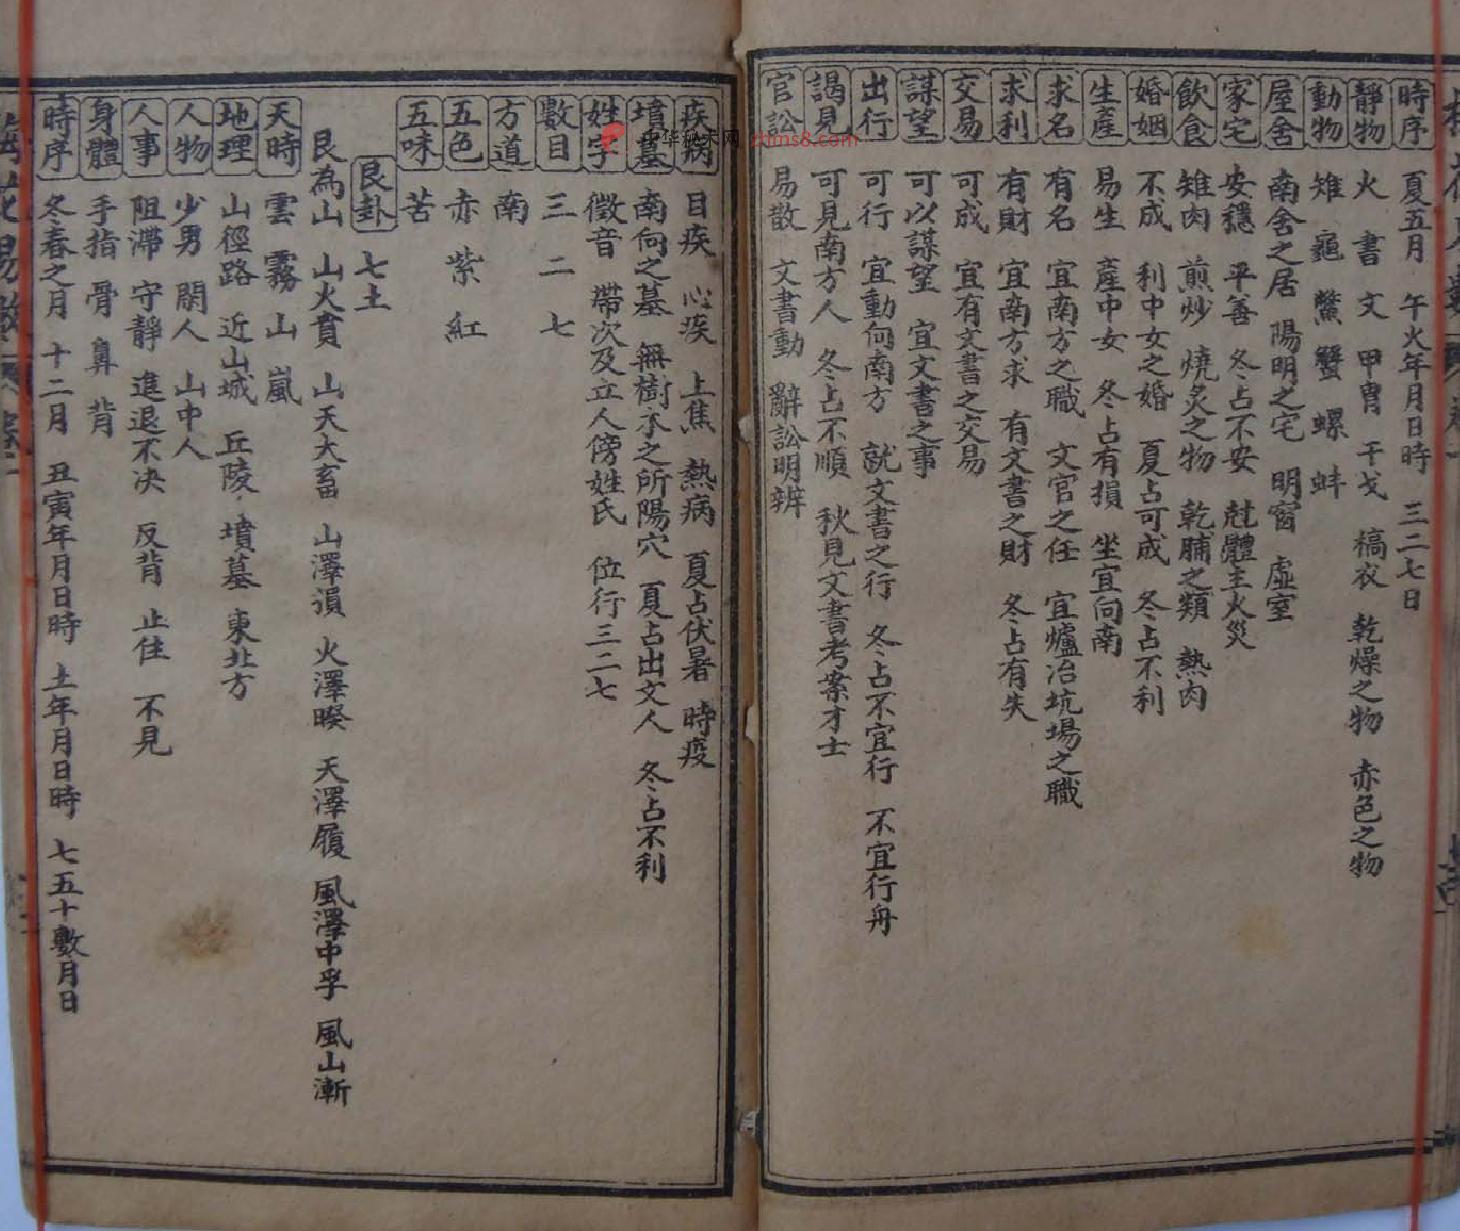 時序 夏五月 午火年月日時 三二七日
靜物 火 書 文 甲冑 干戈 槁衣 乾燥之物 赤色之物
動物 雉 龜 鱉 蟹 螺 蚌
屋舍 南舍之居 陽明之宅 明窗 虛室
家宅 安穩 平善 冬占不安 尅體主火災
飲食 雉肉 煎炒 燒炙之物 乾脯之類 熱肉
婚姻 不成 利中女之婚 夏占可成 冬占不利
生產 易生 產中女 冬占有損 坐宜向南
求名 有名 宜南方之職 文官之任 宜爐冶坑場之職
求利 有財 宜南方求 有文書之財 冬占有失
交易 可成 宜有文書之交易
謀望 可以謀望 宜文書之事
出行 可行 宜動向南方 就文書之行 冬占不宜行 不宜行舟
謁見 可見南方人 冬占不順 秋見文書考案才士
官訟 易散 文書動 辭訟明辨
疾病 目疾 心疾 上焦 熱病 夏占伏暑 時疫
墳墓 南向之墓 無樹木之所陽穴 夏占出文人 冬占不利
姓字 徵音 帶次及立人傍姓氏 位行三二七
數目 三 二 七
方道 南
五色 赤 紫 紅
五味 苦
艮卦 七土
艮為山 山火賁 山天大畜 山澤損 火澤睽 天澤履 風澤中孚 風山漸
天時 雲 霧 山 嵐
地理 山徑路 近山城 丘陵 墳墓 東北方
人物 少男 閒人 山中人
人事 阻滯 守靜 進退不决 反背 止住 不見
身體 手指 骨 鼻 背
時序 冬春之月 十二月 丑寅年月日時 土年月日時 七五十數月日
zhms8.com